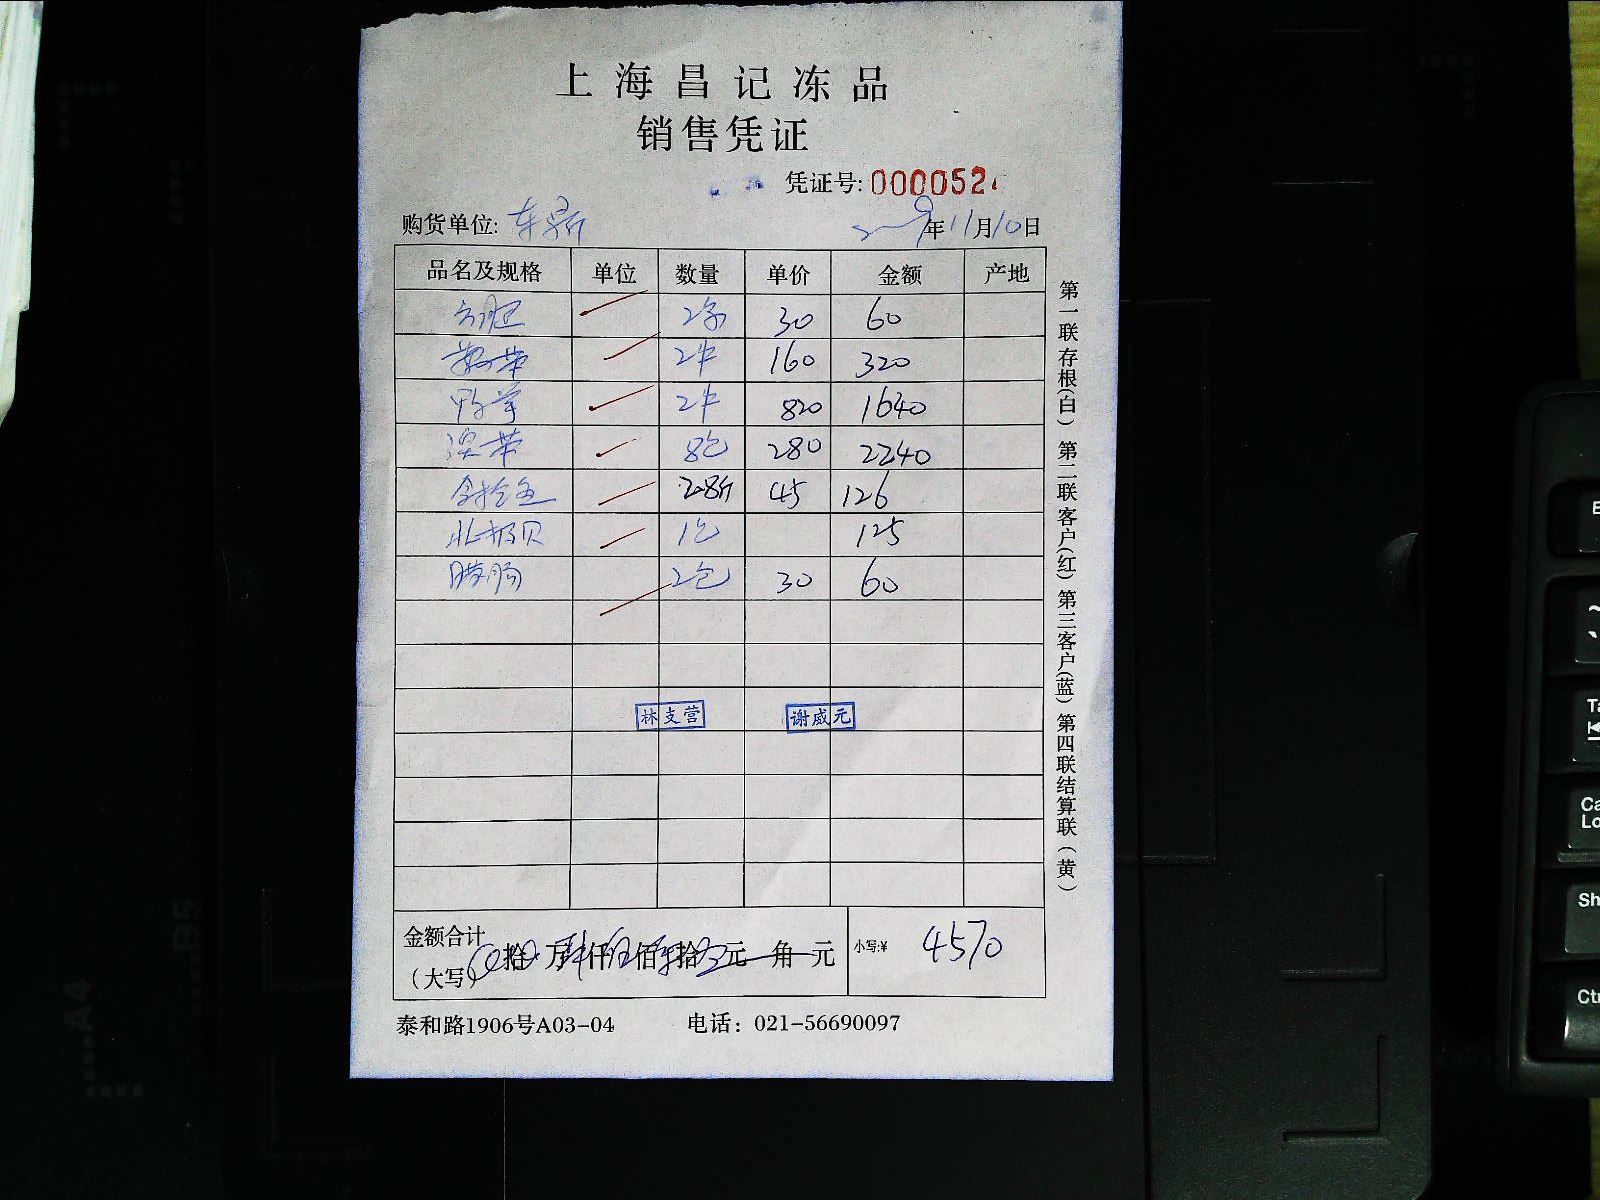 上海昌记冻品
销售凭证
凭证号: 000052
购货单位: 年11月10日
品名及规格 单位 数量 单价 金额 产地
30 60
2件 160 320
2件 820 1640
带 8包 280 2240
2.8斤 45 126
北极贝 1包 125
腊肠 2包 30 60
林支营 谢威元
金额合计
(大写) 拾 万 仟 佰 拾 元 角 元 小写:¥ 4570
泰和路1906号A03-04 电话: 021-56690097
第一联存根(白) 第二联客户(红) 第三客户(蓝) 第四联结算联(黄)
B5
A4